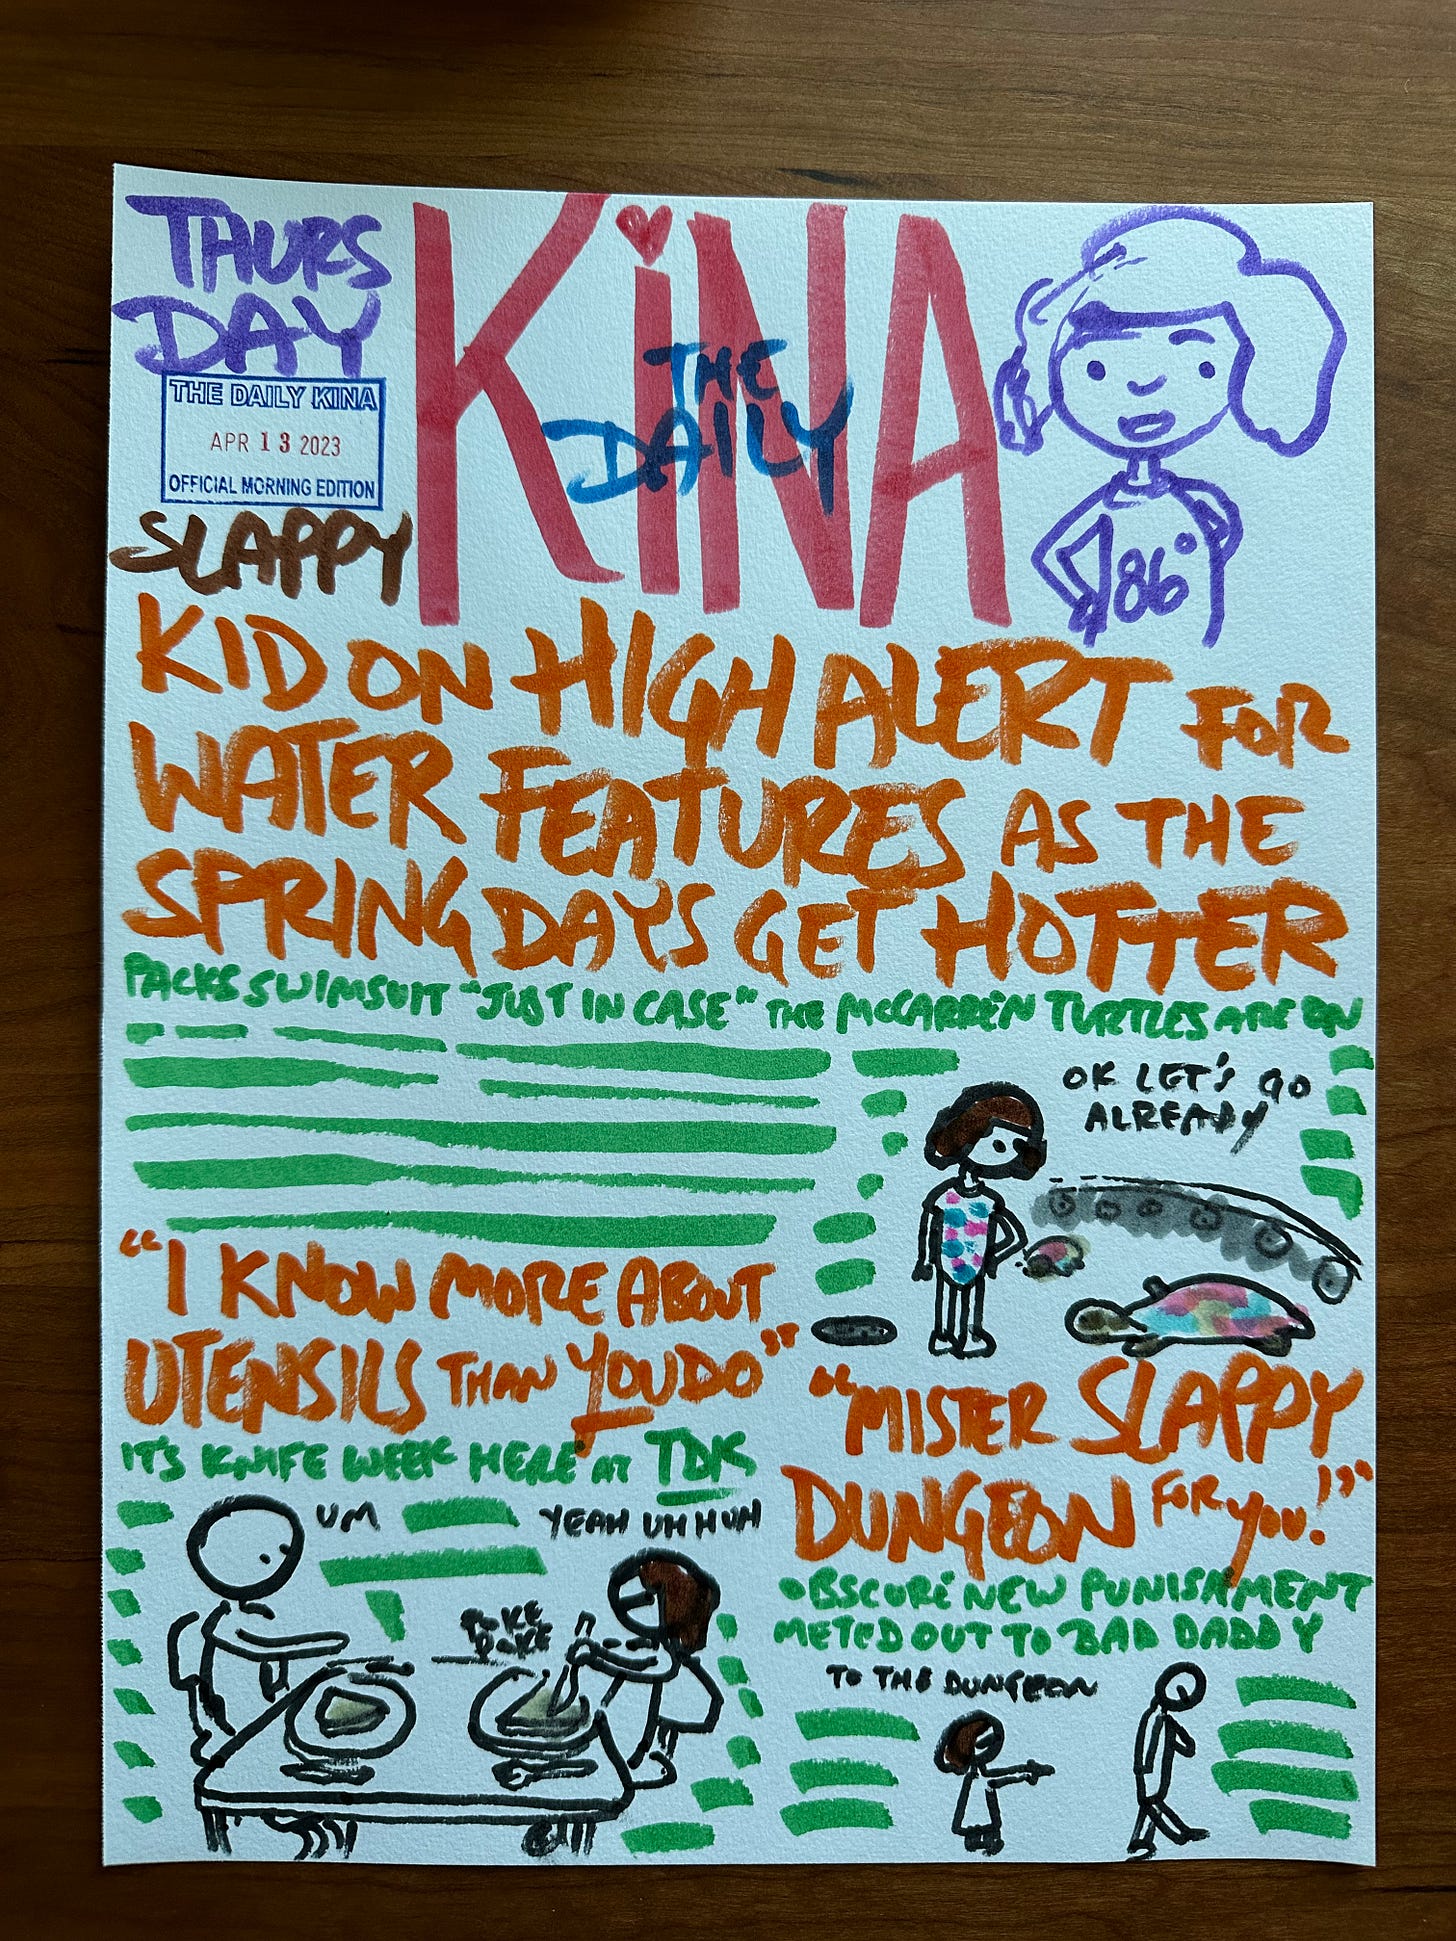 THURS
DAY
THE DAILY KINA
APR 13 2023
OFFICIAL MORNING EDITION
SLAPPY
KiNA
THE
DAILY
86°
KID ON HIGH ALERT FOR
WATER FEATURES AS THE
SPRING DAYS GET HOTTER
PACKS SWIMSUIT "JUST IN CASE" THE McCARREN TURTLES ARE ON
OK LET'S GO
ALREADY
"I KNOW MORE ABOUT
UTENSILS THAN YOU DO"
IT'S KNIFE WEEK HERE AT TDK
UM
YEAH UH HUH
POKE
POKE
"MISTER SLAPPY
DUNGEON FOR YOU!"
OBSCURE NEW PUNISHMENT
METED OUT TO BAD DADDY
TO THE DUNGEON